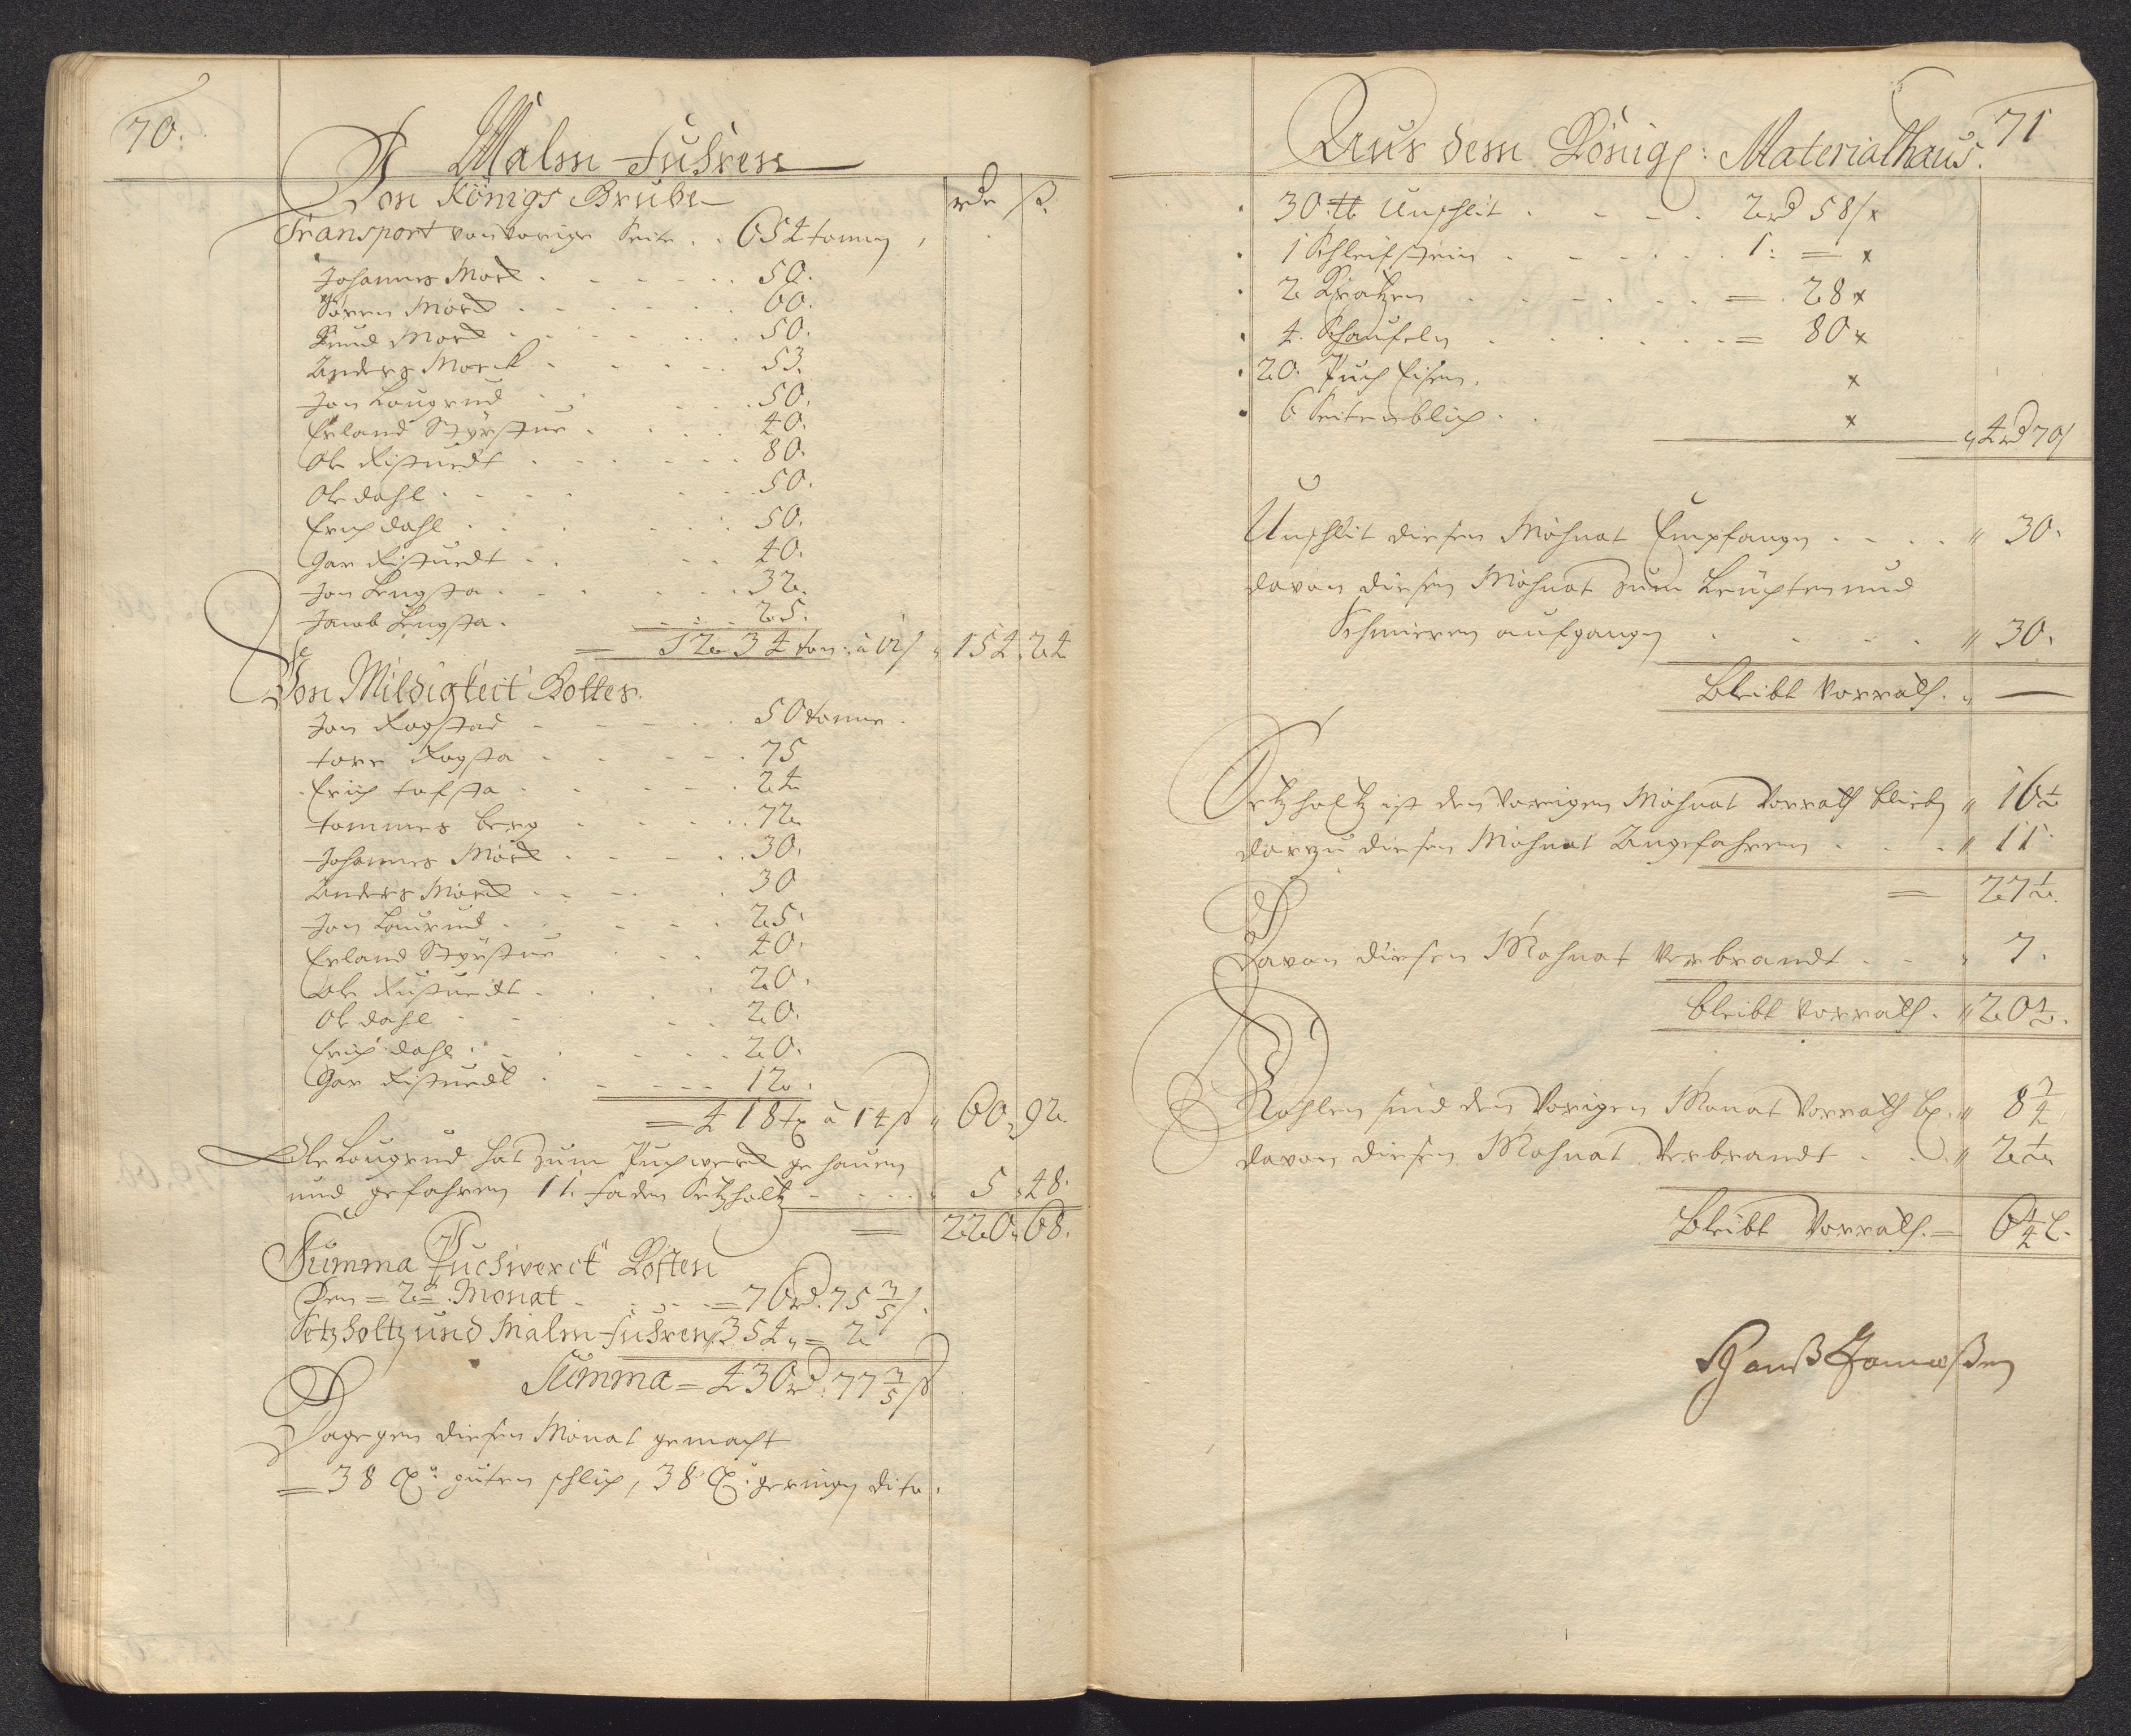 70.
Malm-Fuhren
Von Königs Grube
rdr ß.
Transport von voriger Seite . . 654 tonnen
Johannes Morck . . . 50.
Sören Morck . . . 60.
Knud Morck . . . 50.
Anders Morck . . . 53.
Jon Lougrud . . . 50.
Erland Styrstue . . . 40.
Ole Fistuedt . . . 80.
Ole dahl . . . 50.
Erich dahl . . . 50.
Gar Fistuedt . . . 40.
Jon Lengsta . . . 32.
Jacob Lengsta . . . 25.
= 1234 ton: à 12ß " 154. 24
Von Mildigkeit Gottes.
Jon Rogstad . . . 50 tonne.
tore Rogsta . . . 75
Erich tofsta . . . 24
tommes berg . . . 72
Johannes Morck . . . 30.
Anders Morck . . . 30
Jon Lourud . . . 25.
Erland Styrstue . . . 40.
Ole Fistuedt . . . 20.
Ole dahl . . . 20.
Erich dahl . . . 20.
Gar Fistuedt . . . 12.
= 418 à 14ß " 60. 92.
Ole Lougrud hat zum Puchwerck gehauen
und gefahren 11. faden Setzholtz . . . 5. 48.
= 220. 68.
Summa Puchwerck Kosten
Den = 2. Monat . . . = 76rd. 75 3/5 ß.
Setzholtz und Malm-fuhren 354 " = 2
Summa = 430rd. 77 3/5 ß
Dagegen diesen Monat gemacht
= 38 guten schlich, 38 geringen dito.
71
Aus dem Königl: Materialhaus.
30. ℔ Unschlit . . . 2rd 58ß x
1 Schleifstein . . . 1: = x
2 Kratzen . . . = . 28 x
4. Schaufeln . . . = 80 x
20. Puch Eisen. x
6 Seitenblich . . x
" 4rd 70ß
Unschlit diesen Mohnat Empfangen . . . . " 30.
davon diesen Mohnat zum Leuchten und
Schmieren aufgangen . . . " 30.
Bleibt Vorrath. " —
Setzholtz ist den Vorigen Mohnat Vorrath blieben " 16 1/2
darzu diesen Mohnat Angefahren . . . " 11.
= 27 1/2.
Davon diesen Mohnat Verbrandt . . . " 7.
bleibt Vorrath. " 20 1/2.
Kohlen sind den Vorigen Monat Vorrath bl. " 8 3/4
davon diesen Mohnat Verbrandt . . . " 2 1/2
Bleibt Vorrath. = 6 1/4 l.